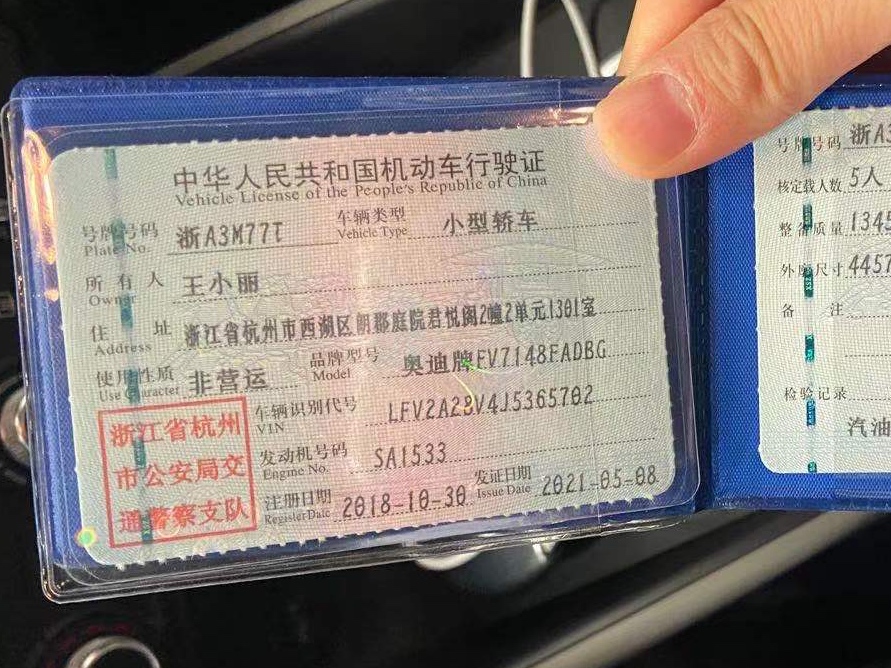 中华人民共和国机动车行驶证
Vehicle License of the People's Republic of China
号牌号码 浙A3M77T 车辆类型 小型轿车
Plate No. Vehicle Type
所有人 王小丽
Owner
住址 浙江省杭州市西湖区朗郡庭院君悦阁2幢2单元1301室
Address
使用性质 非营运 品牌型号 奥迪牌FV7148FADBG
Use Character Model
浙江省杭州
市公安局交
通警察支队
车辆识别代号 LFV2A28V4J5365702
VIN
发动机号码 SA1533
Engine No.
注册日期 2018-10-30 发证日期 2021-05-08
Register Date Issue Date
号牌号码 浙A3
核定载人数 5人
整备质量 1345
外廓尺寸 4457
备注
检验记录
汽油